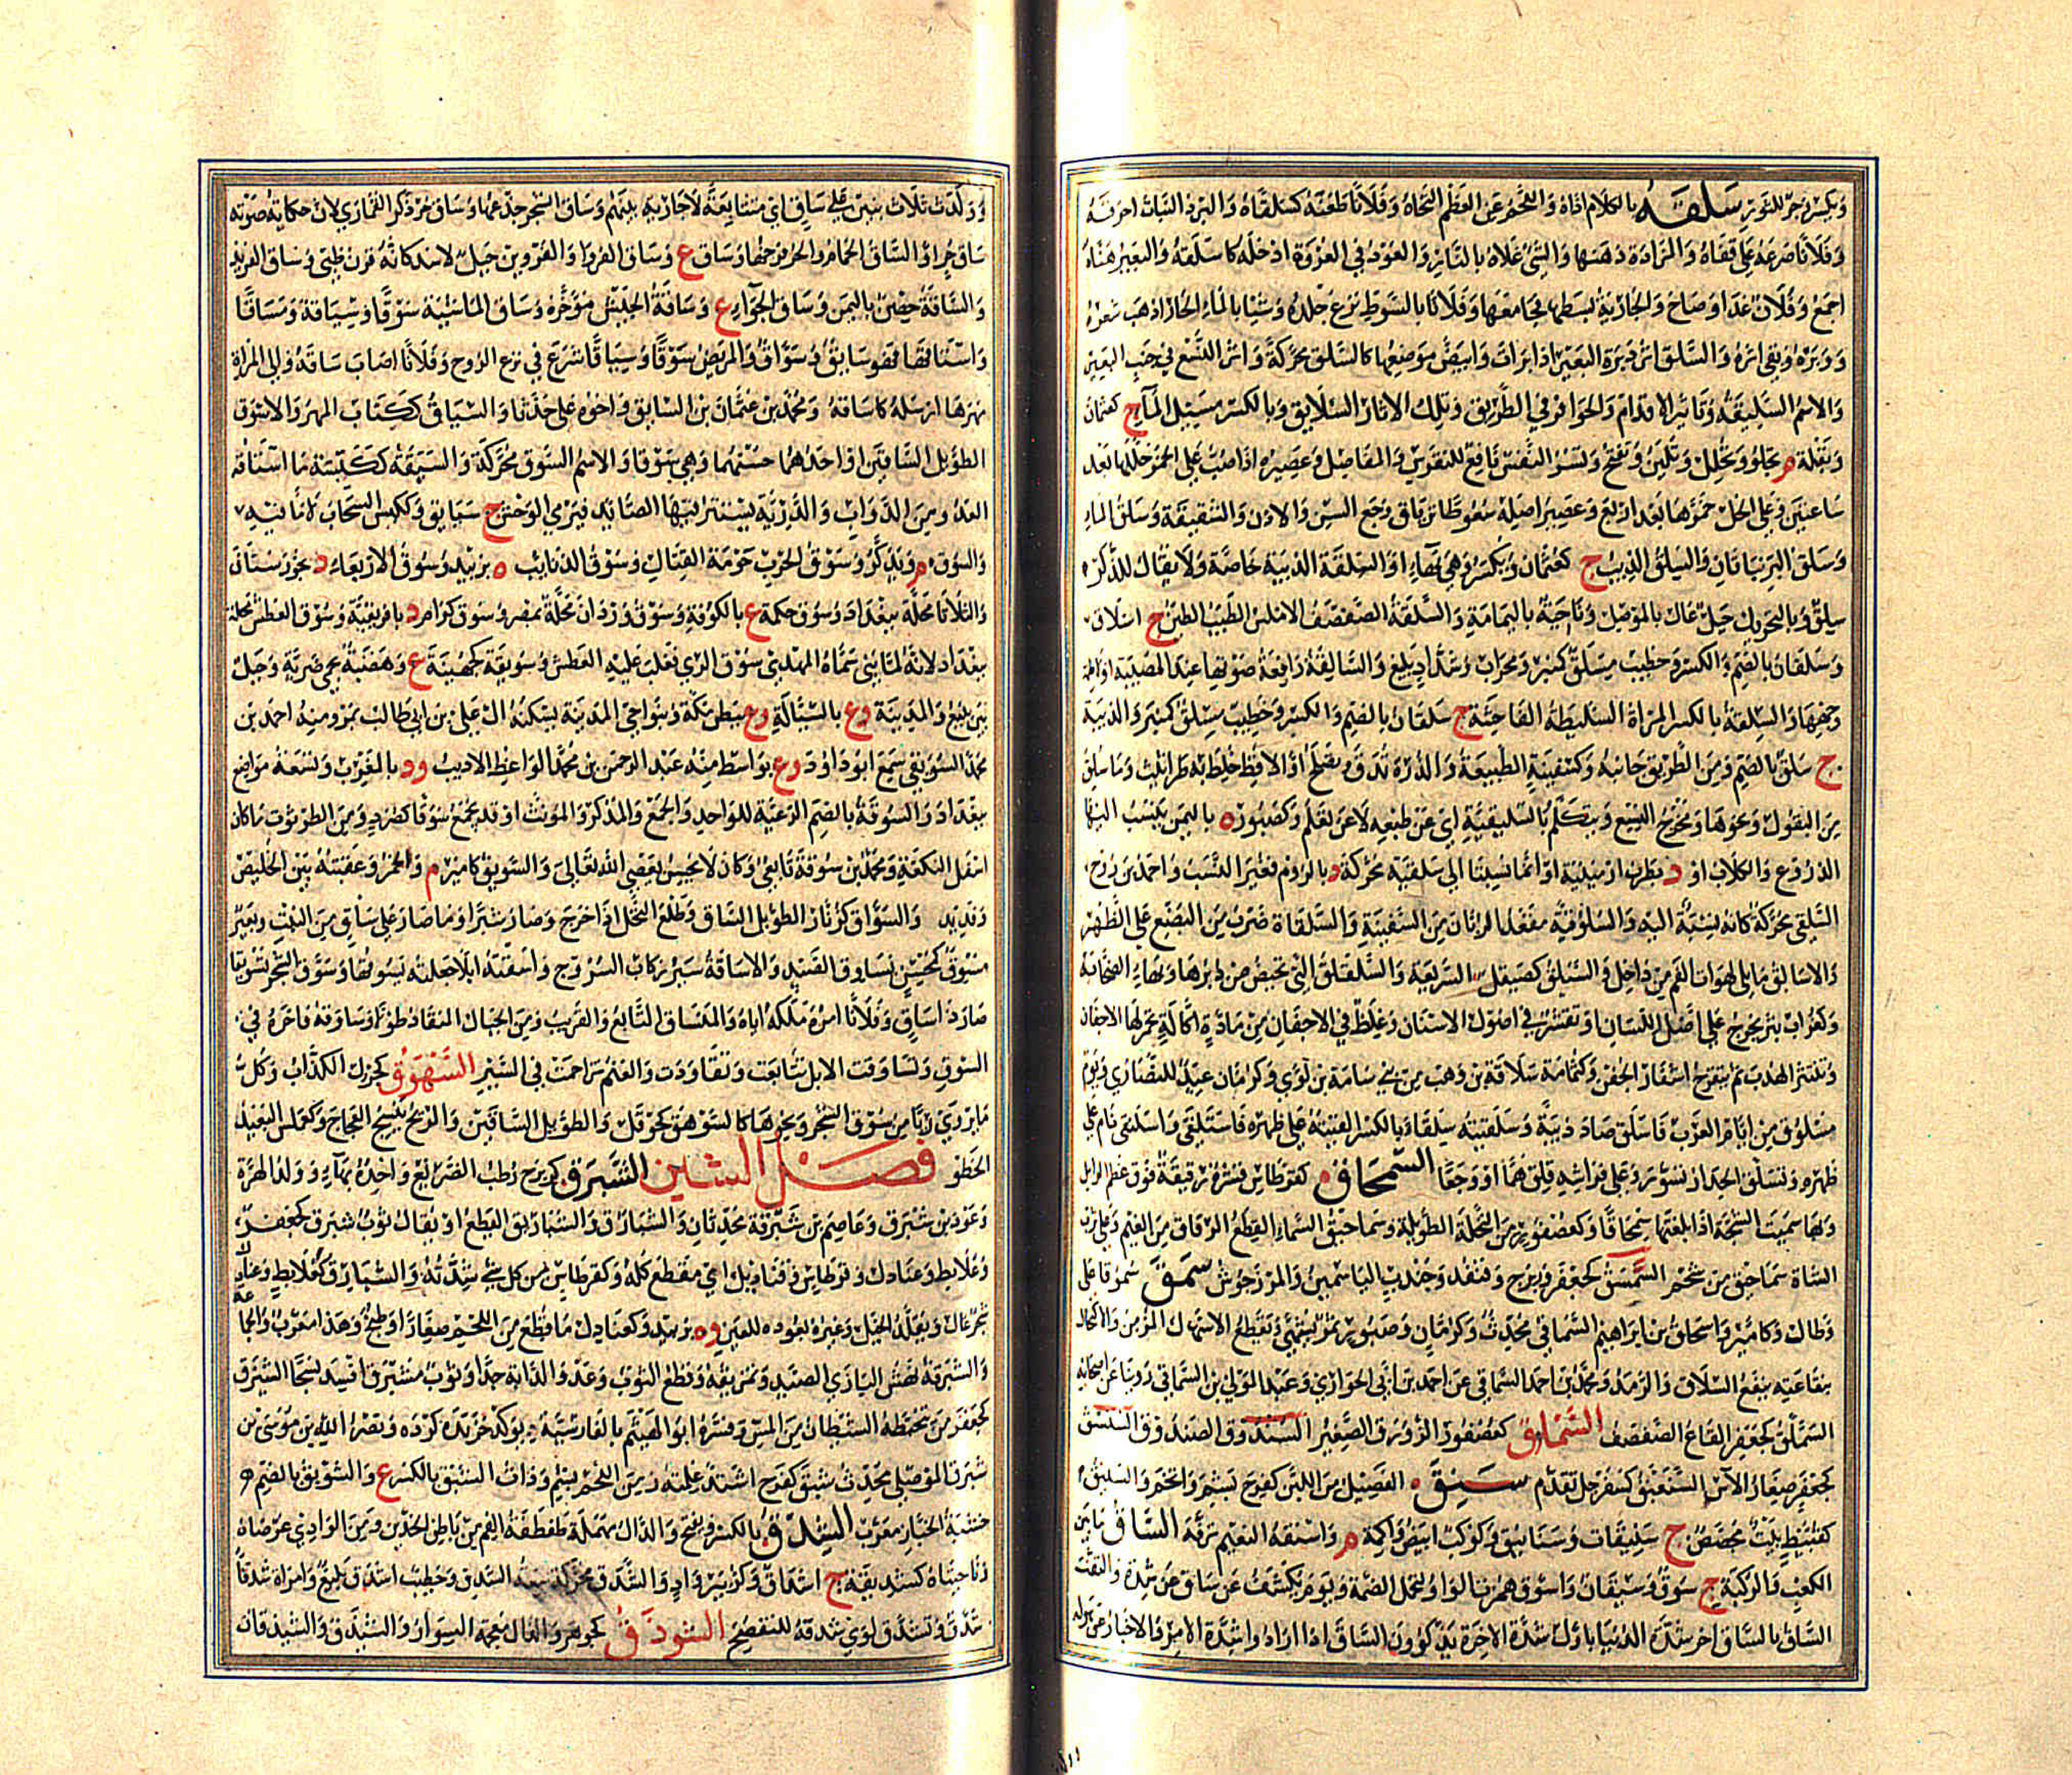 وبكسر وجر للتوتير سلقه بالكلام اذاه واللحم عن العظم التحاه وفلانا طعنه كسلقاه والبرد النبات احرقه
وفلانا صرعه على قفاه والمزادة دهنها والشئ غلاه بالنار والعود في العروة ادخله كاسلقه والبعير هناه
اجمع وفلان عدا وصاح والجارية بسطها فجامعها وفلانا بالسوط نزع جلده وشيا بالماء الحار اذهب شعره
ووبره وبقي اثره والسلق اثر دبرة البعير اذا برات وابيض موضعها كالسلق محركة واثر النسع في جنب البعير
والاسم السليقة وتاثير الاقدام والحوافر في الطريق وتلك الاثار السلايق وبالكسر مسيل الماء ج كعثمان
وبقلة م تجلو وتحلل وتلين وتفتح وتسر النفس نافع للنقرس والمفاصل وعصيره اذا صب على الخمر خللها بعد
ساعتين وعلى الخل خمرها بعد اربع وعصير اصله سعوطا ترياق وجع السن والاذن والشقيقة وسلق الماء
وسلق البر نباتان والسلق الذيب ج كعثمان ويكسر وهي بهاء او السلقة الذيبة خاصة ولا يقال للذكر
سلق وبالتحريك جبل عال بالموصل وناحية باليمامة والسلقة الصفصف الاملس الطيب الطين ج اسلاق
وسلقان بالضم والكسر وخطيب مسلق كمنبر ومحراب وشداد بليغ والسالقة رافعة صوتها عند المصيبة او لاطمة
وجهها والسلقة بالكسر المراة السليطة الفاحشة ج سلقان بالضم والكسر وخطيب سلق كمنبر والذيبة
ج سلق بالضم ومن الطريق جانبه وكسفينة الطبيعة والذرة تدق وتصلح او الاقط خلط به طراثيث وما سلق
من البقول ونحوها ومخرج النسع ويتكلم بالسليقية اي عن طبعه لا عن تعلم وكصبور ه باليمن ينسب اليها
الدروع والكلاب او د بطرف ارمينية او انما نسبتا الى سلقية محركة د بالروم فغير النسب واحمد بن روح
السلقي محركة كانه نسبة اليه والسلوقية مقعد الربان من السفينة والسلقاة ضرب من البضع على الظهر
والاسالق ما يلي لهوات الفم من داخل والسيلق كصيقل السريعة والسلقلق التي تحيض من دبرها وبهاء الصخابة
وكغراب بثر يخرج على اصل اللسان او تقشر في اصول الاسنان وغلظ في الاجفان من مادة اكالة يحمر لها الاجفان
وينتثر الهدب ثم يتقرح اشفار الجفن وكثمامة سلاقة بن وهب من بني سامة بن لؤي وكرمان عيد للنصارى ويوم
مسلوق من ايام العرب فاسلق صاد ذيبة وسلقيته سلقاء بالكسر القيته على ظهره فاستلقى واسلنقى نام على
ظهره وتسلق الجدار تسور وعلى فراشه قلق هما او وجعا السمحاق كقرطاس قشرة رقيقة فوق عظم الراس
وبها سميت الشجة اذا بلغتها سمحاقا وكعصفور من النخلة الطويلة وسماحيق السماء القطع الرقاق من الغيم وعلى ثرب
الشاة سماحيق من شحم السمسق كجعفر وزبرج وقنفذ وجندب الياسمين والمرزجوش سمق سموقا علا
وطال وكامير واسحاق بن ابراهيم السماقي محدث وكرمان وصبور ثمر يشهي ويقطع الاسهال المزمن والاكتحال
بنقاعته ينفع السلاق والرمد ومحمد بن احمد السماقي عن احمد بن ابي الحواري وعبد المولى بن السماقي روينا عن اصحابه
السملق كجعفر القاع الصفصف السنارق كعصفور الزورق الصغير السندوق الصندوق السنسق
كجعفر صغار الآس السنعبق كسفرجل تقدم سنق الفصيل من اللبن كفرح بشم واتخم والسنيق
كقبيط بيت مجصص ج سنيقات وسنانيق وكوكب ابيض واكمة م واسنقه النعيم ترفه الساق ما بين
الكعب والركبة ج سوق وسيقان واسوق همزت الواو لتحمل الضمة ويوم يكشف عن ساق عن شدة والتفت
الساق بالساق اخر شدة الدنيا باول شدة الاخرة يذكرون الساق اذا ارادوا شدة الامر والاخبار عن هوله
وولدت ثلاث بنين على ساق اي متتابعة لا جارية بينهم وساق الشجر جذعها وساق حر ذكر القماري لان حكاية صوته
ساق حر او الساق الحمام والحر فرخها وساق ع وساق الفروا والفروين جبل لاسد كانه قرن ظبي وساق الفريد
والساقة حصن باليمن وساق الجواء ع وساقة الجيش مؤخره وساق الماشية سوقا وسياقة ومساقا
واستاقها فهو سايق وسواق والمريض سوقا وسياقا شرع في نزع الروح وفلانا اصاب ساقه والى المراة
مهرها ارسله كاساقه ومحمد بن عثمان بن السايق واخوه علي حدثا والسياق ككتاب المهر والاسوق
الطويل الساقين او احدهما حسنهما وهي سوقا والاسم السوق محركة والسيقة ككيسة ما استاقه
العدو من الدواب والدرية يستتر بها الصايد فيرمي الوحش ج سيايق وككيس السحاب لا ماء فيه
والسوق م ويذكر وسوق الحرب حومة القتال وسوق الذنايب ه بزبيد وسوق الاربعاء د بخوزستان
والثلاثا محلة ببغداد وسوق حكمة ع بالكوفة وسوق وردان محلة بمصر وسوق كرامر د بافريقية وسوق العطش محلة
ببغداد لانه لما بنى سماه المهدي سوق الري فغلب عليه العطش وسويقة كجهينة ع وهضبة بحمى ضرية وجبل
بين ينبع والمدينة وع بالسيالة وع ببطن مكة وبنواحي المدينة يسكنه ال علي بن ابي طالب بمرو ومنه احمد بن
محمد السويقي سمع ابو داود وع بواسط منه عبد الرحمن بن محمد الواعظ الاديب ود بالغرب وتسعة مواضع
ببغداد والسوقة بالضم الرعية للواحد والجمع والمذكر والمؤنث او قد يجمع سوقا كصرد ومن الطرثوث ما كان
اسفل النكعة ومحمد بن سوقة تابعي وكان لا يحسن يعصي الله تعالى والسويق كامير م والخمر وعقبة بين الخليص
وقديد والسواق كزنار الطويل الساق وطلع النخل اذا خرج وصار شبرا وما صار على ساق من النبت وبعير
مسوق كمحسن يساوق الصيد والاساقة سير ركاب السروج واسقته ابلا جعلته يسوقها وسوق الشجر تسويقا
صار ذا ساق وفلانا امره ملكه اياه والمنساق التابع والقريب ومن الجبال المنقاد طولا وساوقه فاخره في
السوق وتساوقت الابل تتابعت وتقاودت والغنم تزاحمت في السير السهوق كجرول الكذاب وكل
ما يروى ريا من سوق الشجر ونحوها كالسوهق كحوقل والطويل الساقين والريح تنسج العجاج وكعملس البعيد
الخطو فصل الشين الشبرق كزبرج رطب الضريع واحده بهاء وولد الهرة
وعود بن شبرق وعاصم بن شبرقة محدثان والشبارق والشباريق القطع او يقال ثوب شبرق كجعفر
وعلابط وعنادل وقرطاس وقناديل اي مقطع كله وكقرطاس من كل شئ شدته والشبارق كعلابط وعنادل
شجر عال ويقلد الخيل وغيرها بعوده للعين وه بزبيد وكعنادل ما قطع من اللحم صغارا وطبخ وهذا معرب والجماعة
والشبرقة نهش البازي الصيد وتمزيقه وقطع الثوب وعدو الدابة جدا وثوب مشبرق افسد نسجا الشبرق
كجعفر من تخبطه الشيطان من المس وفسره ابو الهيثم بالفارسية ديوكد خزيده كرده ونصر الله بن موسى بن
شبرق الموصلي محدث شبق كفرح اشتد غلمته ومن اللحم بشم وذات الشبق بالكسر ع والشوبق بالضم
خشبة الخباز معرب الشدق بالكسر ويفتح والدال مهملة طفطفة الفم من باطن الخدين ومن الوادي عرصاه
وناحيتاه كشديقه ج اشداق وكزبير واد والشدق محركة سعة الشدق وخطيب اشدق بليغ وامراة شدقا
شدق وتشدق لوى شدقه للتفصح الشوذق كجوهر والذال معجمة السوار والشيذق والشيذقان